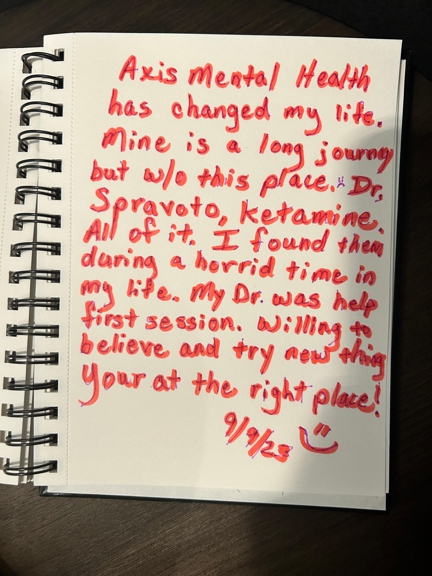 Axis Mental Health
has changed my life.
Mine is a long journy
but w/o this place. Dr,
Spravoto, ketamine.
All of it. I found them
during a horrid time in
my life. My Dr. was help
first session. Willing to
believe and try new thing
Your at the right place!
9/9/25